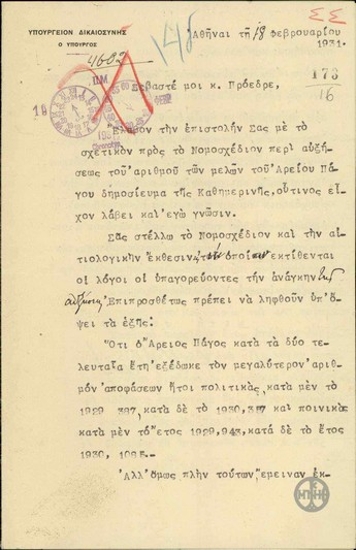 ΥΠΟΥΡΓΕΙΟΝ ΔΙΚΑΙΟΣΥΝΗΣ
Ο ΥΠΟΥΡΓΟΣ
Ἀθῆναι τῇ 18 Φεβρουαρίου
1931.
4602
173
16
Σεβαστέ μοι κ. Πρόεδρε,
Ἔλαβον τὴν ἐπιστολήν Σας μὲ τὸ
σχετικὸν πρὸς τὸ Νομοσχέδιον περὶ αὐξή-
σεως τοῦ ἀριθμοῦ τῶν μελῶν τοῦ Ἀρείου Πά-
γου δημοσίευμα τῆς Καθημερινῆς, οὗτινος εἶ-
χον λάβει καὶ ἐγὼ γνῶσιν.
Σᾶς στέλλω τὸ Νομοσχέδιον καὶ τὴν αἰ-
τιολογικὴν ἔκθεσιν, ἐκτίθενται
οἱ λόγοι οἱ ὑπαγορεύοντες τὴν ἀνάγκην τῆς
αὐξήσεως Ἐπιπροσθέτως πρέπει νὰ ληφθοῦν ὑπ'ὄ-
ψει τὰ ἑξῆς:
Ὅτι ὁ Ἄρειος Πάγος κατὰ τὰ δύο τε-
λευταῖα ἔτη ἐξέδωκε τὸν μεγαλύτερον ἀριθ-
μὸν ἀποφάσεων ἤτοι πολιτικὰς, κατὰ μὲν τὸ
1929 397, κατὰ δὲ τὸ 1930, 387 καὶ ποινικὰς
κατὰ μὲν τὸ ἔτος 1929, 943, κατὰ δὲ τὸ ἔτος
1930, 1085.
Ἀλλ' ὅμως πλὴν τούτων, ἔμειναν ἐκ-